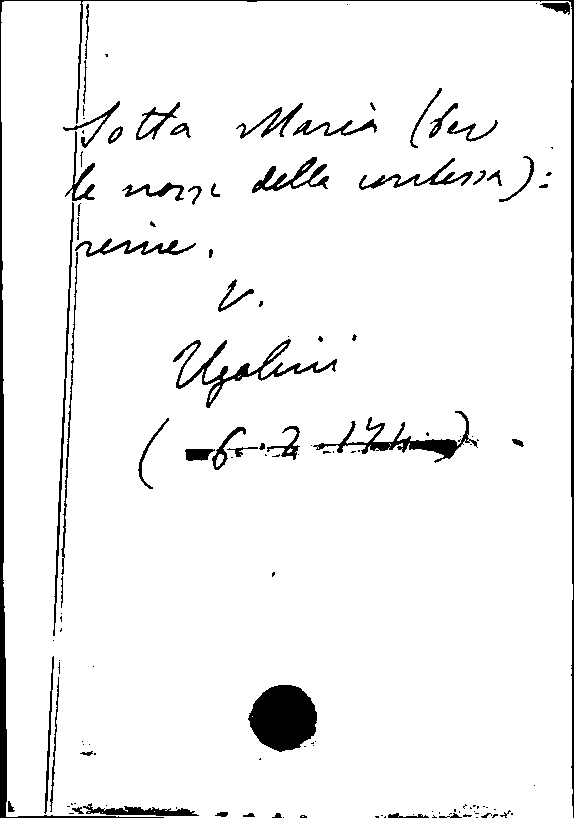 Sotta Maria (per
le nozze della contessa):
rime.
v.
Ugolini
( 6.2.171 ) .